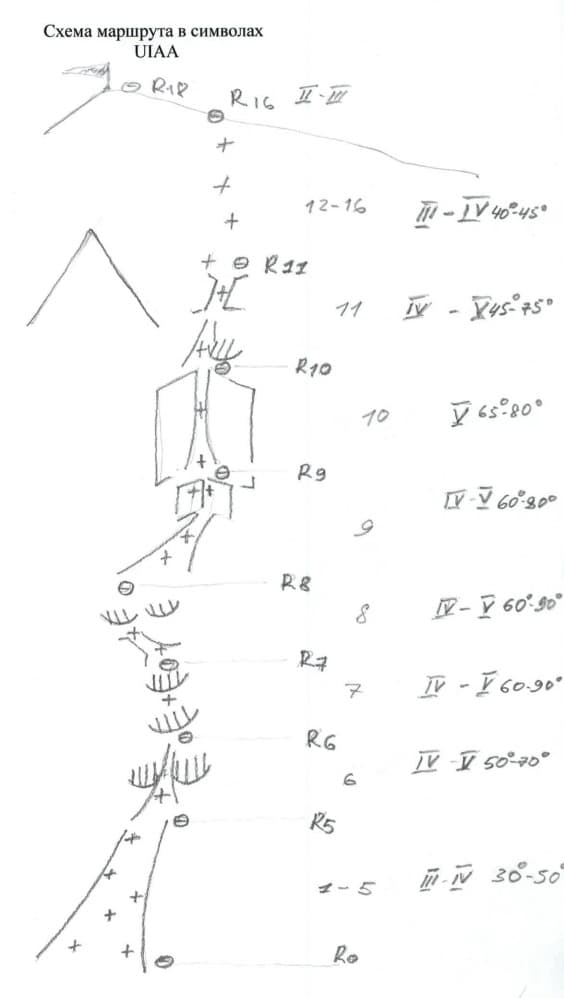 Схема маршрута в символах
UIAA
R18
R16 II-III
12-16 III-IV 40°-45°
R11
11 IV - V 45°-75°
R10
10 V 65°-80°
R9
IV-V 60°-80°
9
R8
8 IV-V 60°-90°
R7
7 IV - V 60-90°
R6
IV-V 50°-70°
6
R5
1-5 III-IV 30°-50°
R0